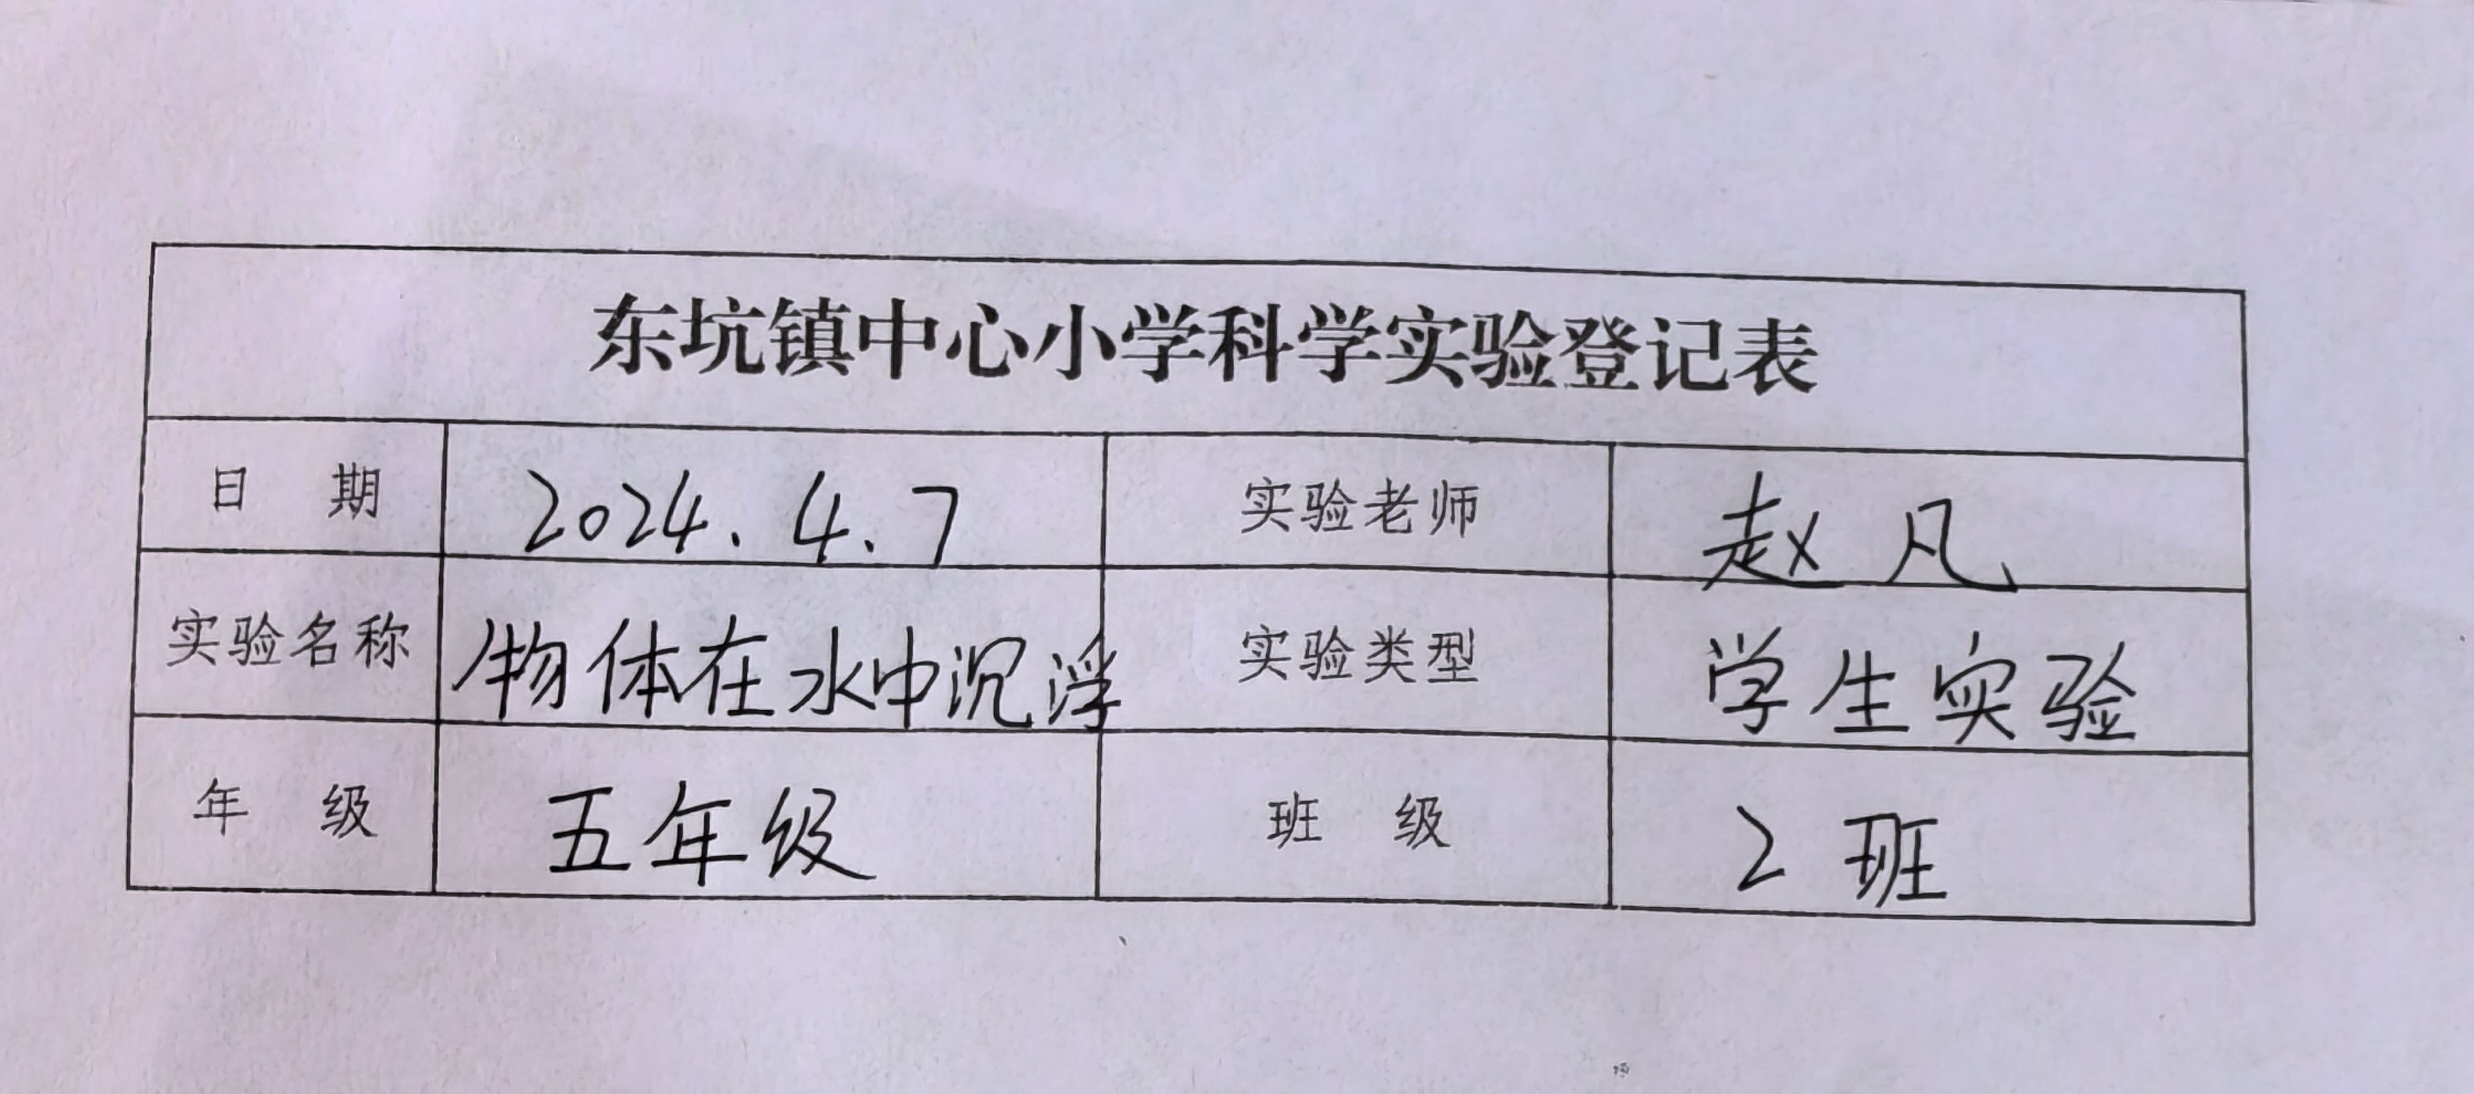 东坑镇中心小学科学实验登记表
日 期 2024.4.7 实验老师 赵凡
实验名称 物体在水中沉浮 实验类型 学生实验
年 级 五年级 班 级 2班